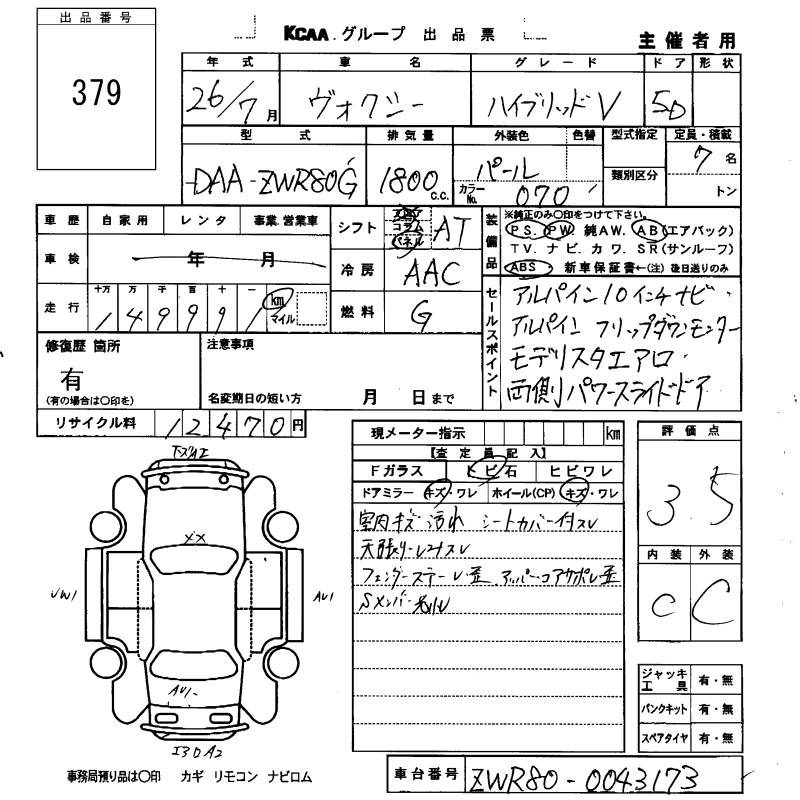 出品番号
379
KCAA グループ 出品票
主催者用
年式 車名 グレード ドア 形状
26/7月 ヴォクシー ハイブリッドV 5D
型式 排気量 外装色 色替 型式指定 定員・積載
DAA-ZWR80G 1800 C.C. パール 7名
カラーNo. 070 類別区分 トン
車歴 自家用 レンタ 事業.営業車
シフト コラム パネル AT
装備品 ※純正のみ○印をつけて下さい。
P S. P W 純AW. A B (エアバック)
T V. ナビ. カワ. S R (サンルーフ)
ABS 新車保証書←(注) 後日送りのみ
車検 年 月
冷房 AAC
走行 十万 万 千 百 十 一
149991 km マイル
燃料 G
セールスポイント
アルパイン10インチナビ・
アルパイン フリップダウンモニター
モデリスタエアロ・
両側パワースライドドア
修復歴 箇所
有
(有の場合は○印を)
注意事項
名変期日の短い方 月 日まで
リサイクル料 12470円
現メーター指示 km
【査定員記入】
Fガラス トビ石 ヒビワレ
ドアミラー キズ・ワレ ホイール(CP) キズ・ワレ
室内キズ・汚れ シートカバー付
天張り
S メンバー
評価点
3.5
内装 外装
C C
下ズリエ
XX
UW1
AU1
AU1
I3 0 A2
ジャッキ工具 有・無
パンクキット 有・無
スペアタイヤ 有・無
事務局預り品は○印 カギ リモコン ナビロム
車台番号 ZWR80-0043173